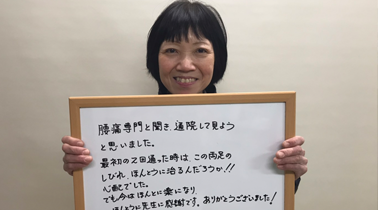 腰痛専門と聞き、通院して見よう
と思いました。
最初の2回通った時は、この両足の
しびれ、ほんとうに治るんだろうか!!
心配でした。
でも今はほんとに楽になり、
ほんとうに先生に感謝です。ありがとうございました!